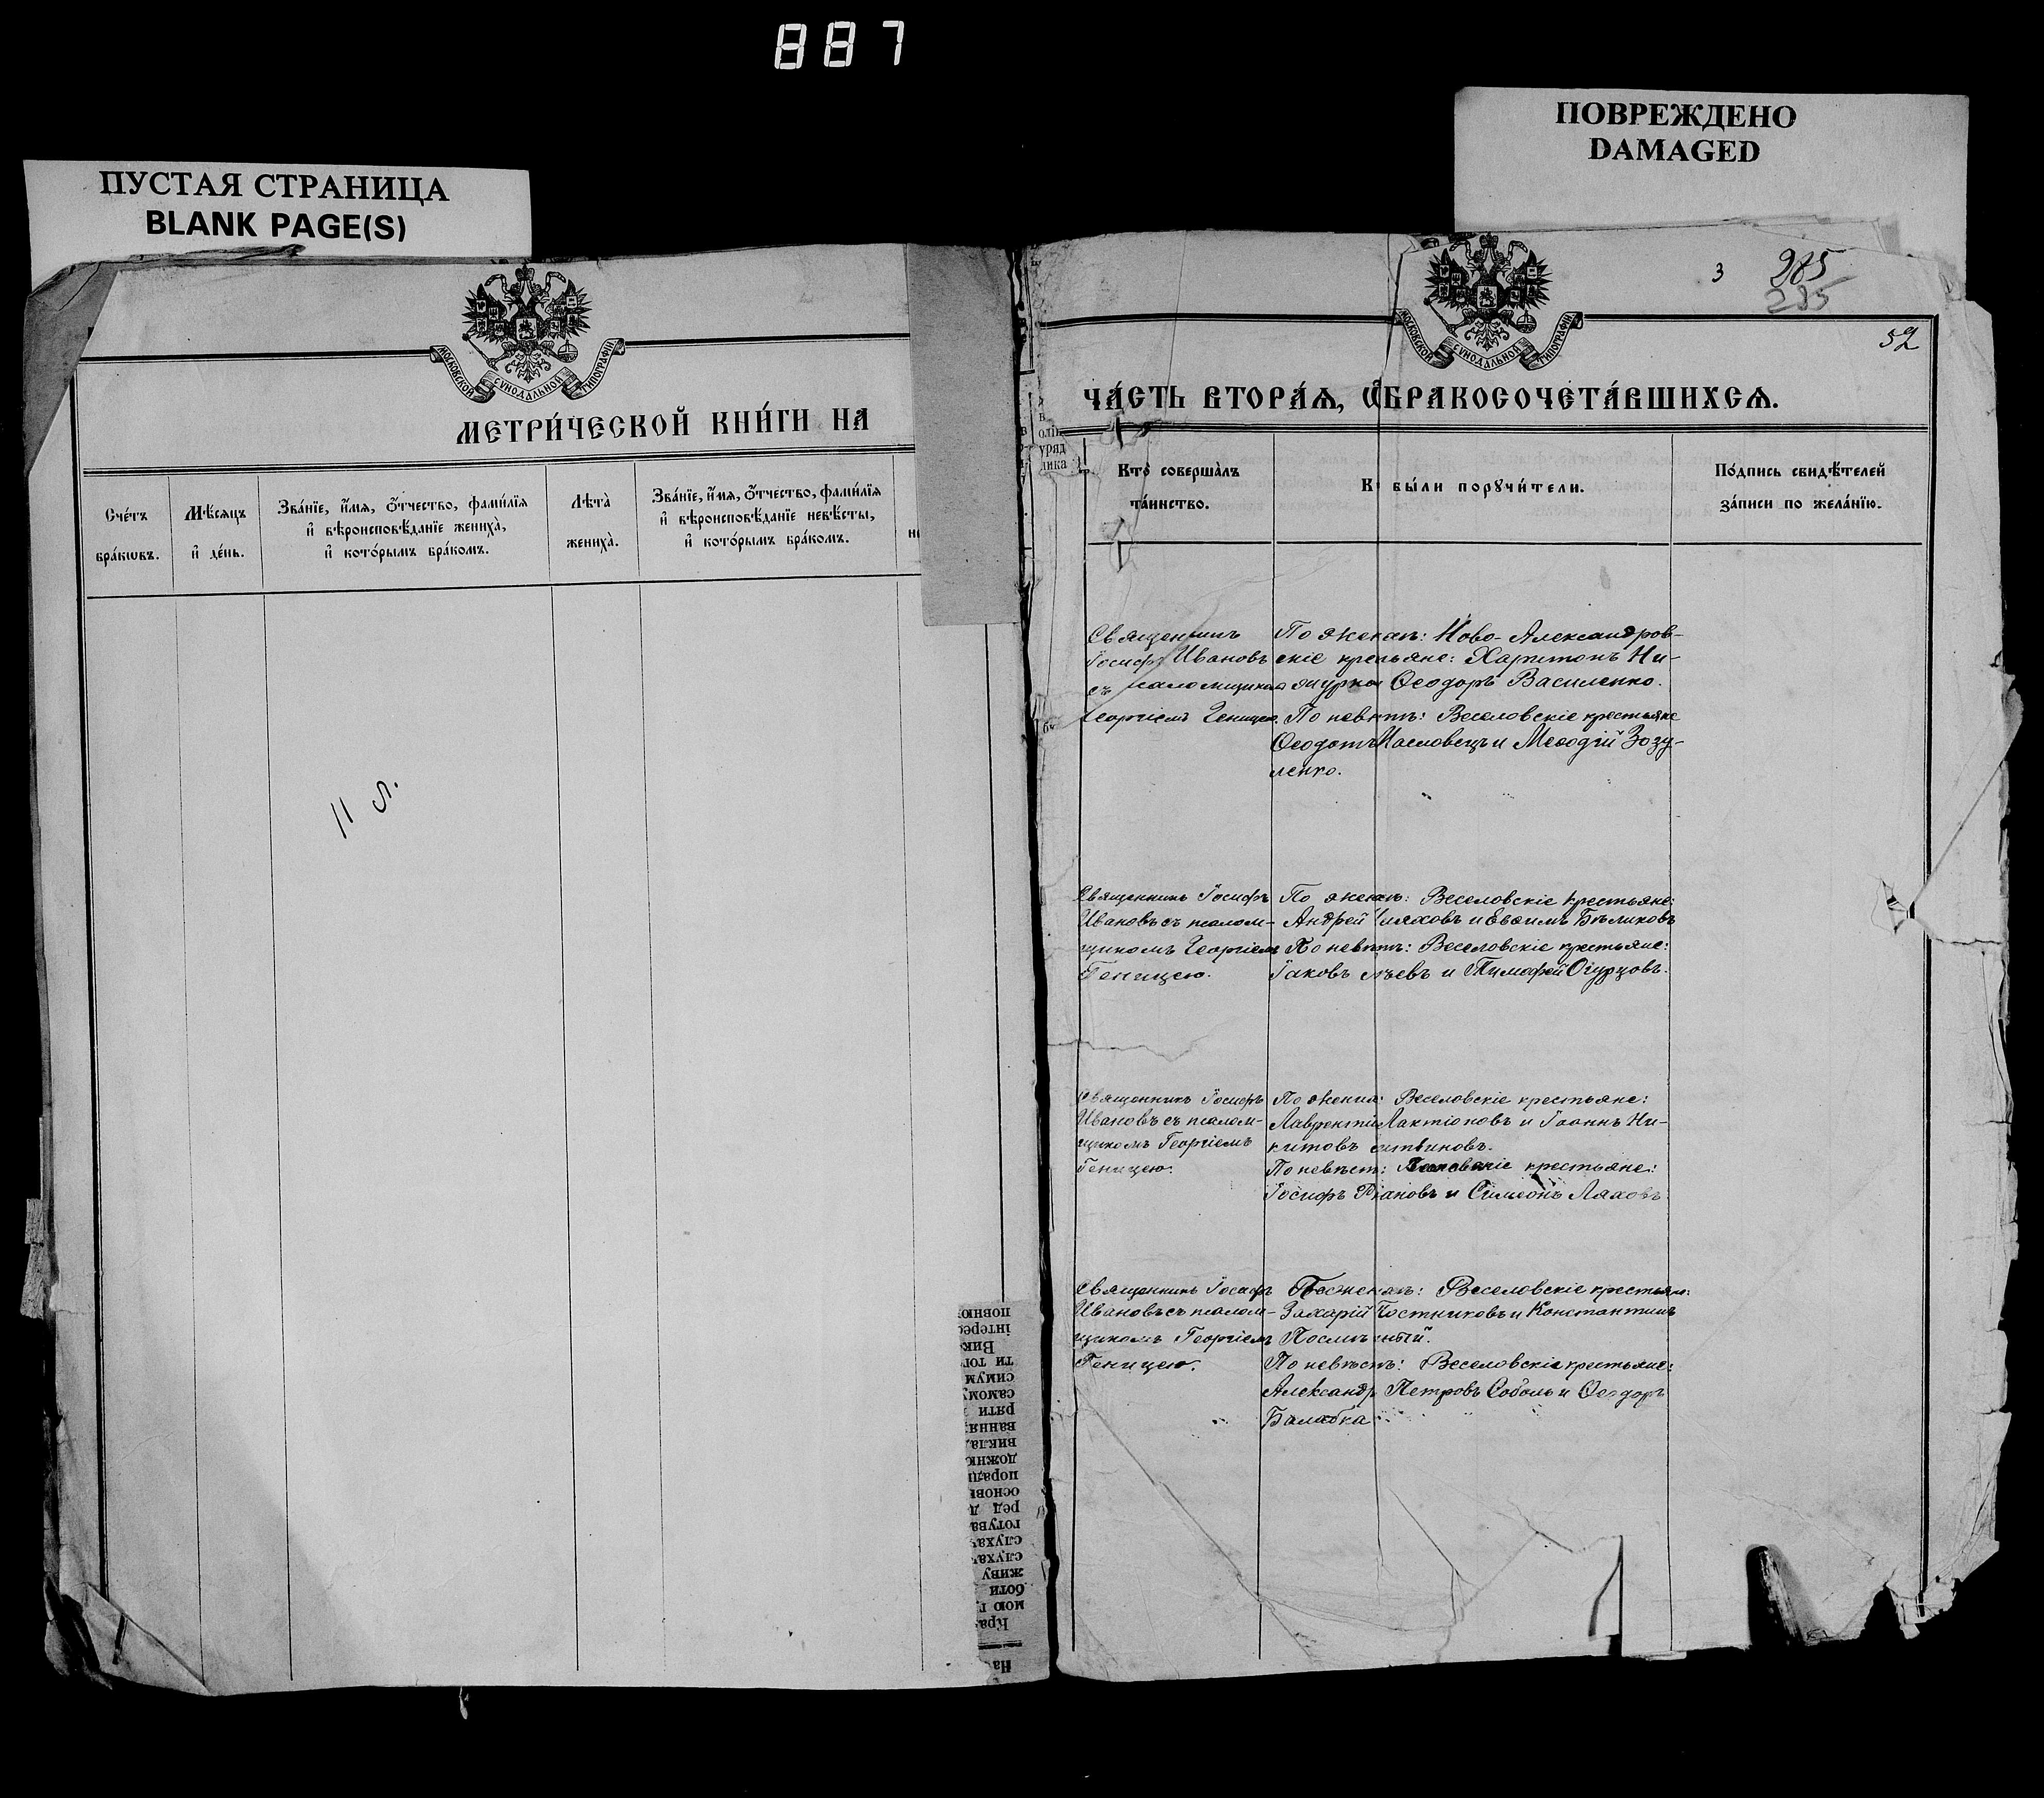 887
ПУСТАЯ СТРАНИЦА
BLANK PAGE(S)
ПОВРЕЖДЕНО
DAMAGED
МОСКОВСКОЙ СѴНОДАЛЬНОЙ ТИПОГРАФІИ
МЕТРИ́ЧЕСКОЙ КНИ́ГИ НА
Сче́тъ
бра́кωвъ.
Мѣ́сяцъ
и҆ де́нь.
Зва́нїе, и҆́мѧ, ѻ҆́тчество, фами́лїѧ
и҆ вѣроисповѣ́данїе жениха̀,
и҆ кото́рымъ бра́комъ.
Лѣ́та̀
жениха̀.
Зва́нїе, и҆́мѧ, ѻ҆́тчество, фами́лїѧ
и҆ вѣроисповѣ́данїе невѣ́сты,
и҆ кото́рымъ бра́комъ.
повною
інтерес
Вик
ти тог
симум
самому
рати
вання
викла
должн
поради
основ
ред д
готува
слуха
слуха
живу
боти
мою г
Кра
На
3
285
285
52
МОСКОВСКОЙ СѴНОДАЛЬНОЙ ТИПОГРАФІИ
ЧА́СТЬ ВТОРА́Ѧ, Ѡ҆ БРАКОСОЧЕТА́ВШИХСѦ.
уряд
дика
Кто̀ соверша́лъ
та́инство.
бы́ли порꙋчи́тели.
По́дпись свидѣ́телей
за́писи по жела́нїю.
Священникъ
Іосифъ Ивановъ
съ псаломщикомъ
Георгіемъ Геницею.
По женихѣ: Ново-Александров-
скіе крестьяне: Харитонъ Ни-
Ѳеодоръ Василенко.
По невѣстѣ: Веселовскіе крестьяне
Ѳеодотъ Масловецъ и Меѳодій Зозу-
ленко.
Священникъ Іосифъ
Ивановъ съ псалом-
щикомъ Георгіемъ
Геницею.
По женихѣ: Веселовскіе крестьяне:
Андрей и Евѳимъ Бѣликовъ
По невѣстѣ: Веселовскіе крестьяне:
Іаковъ и Тимофей Огурцовъ.
Священникъ Іосифъ
Ивановъ съ псалом-
щикомъ Георгіемъ
Геницею.
По женихѣ: Веселовскіе крестьяне:
Лаврентій Лактіоновъ и Іоаннъ Ни-
китовъ Литвиновъ.
По невѣстѣ: крестьяне:
Іосифъ и Симеонъ Ляховъ
Священникъ Іосифъ
Ивановъ съ псалом-
щикомъ Георгіемъ
Геницею.
По женихѣ: Веселовскіе крестьяне:
Захарій Постниковъ и Константинъ
По невѣстѣ: Веселовскіе крестьяне:
Александръ Петровъ Соболь и Ѳеодоръ
Балабка